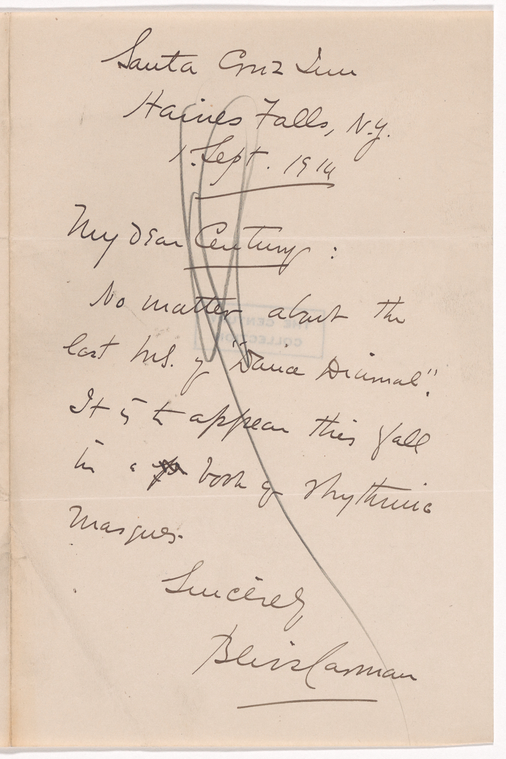 Santa Cruz Inn
Haines Falls, N.Y.
1. Sept. 1914
My dear Century :
No matter about the
lost MS. of "Dance Diurnal".
It is to appear this fall
in a book of rhythmic
masques.
Sincerely
Bliss Carman
THE CENTURY
COLLECTION